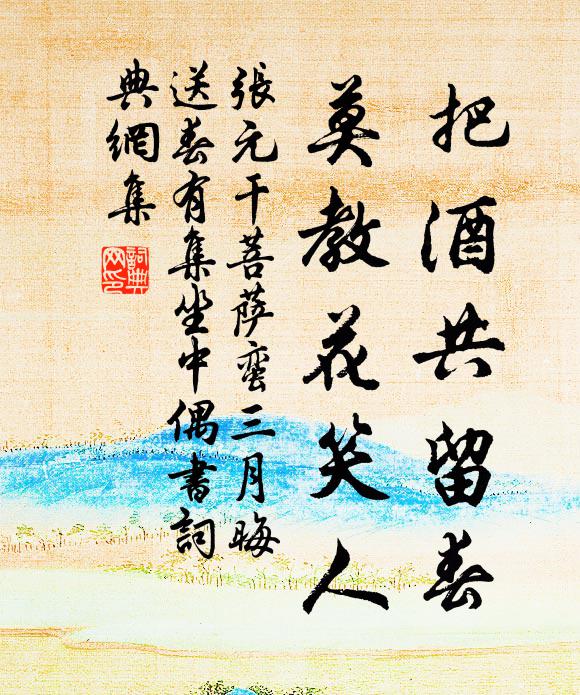 把酒共留春
莫教花笑人
張元干菩萨蛮三月晦
送春有集坐中偶書詞
典網集
詞典
网印